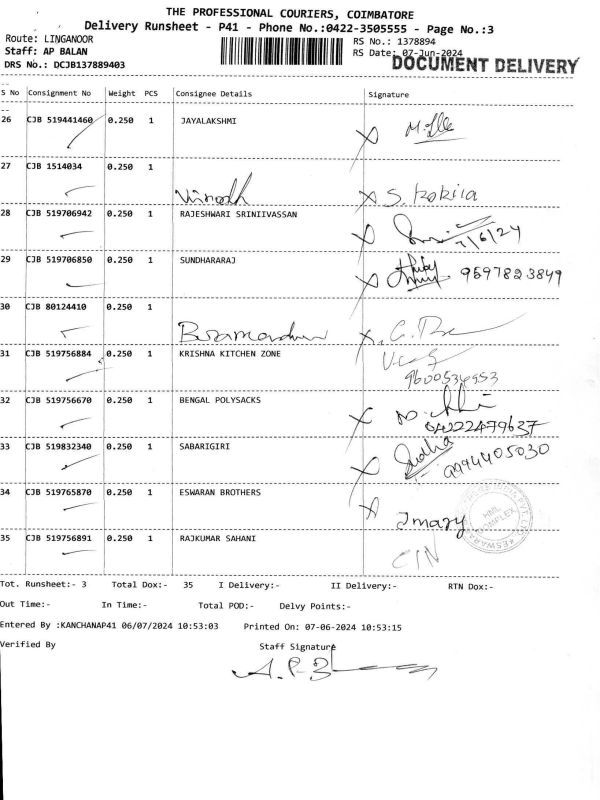 THE PROFESSIONAL COURIERS, COIMBATORE
Delivery Runsheet - P41 - Phone No.:0422-3505555 - Page No.:3
Route: LINGANOOR
RS No.: 1378894
Staff: AP BALAN
RS Date: 07-Jun-2024
DRS No.: DCJB137889403
DOCUMENT DELIVERY
S No Consignment No Weight PCS Consignee Details Signature
26 CJB 519441460 0.250 1 JAYALAKSHMI
27 CJB 1514034 0.250 1 Vinodh S. Kokila
28 CJB 519706942 0.250 1 RAJESHWARI SRINIIVASSAN 7/6/24
29 CJB 519706850 0.250 1 SUNDHARARAJ 9597823849
30 CJB 80124410 0.250 1
31 CJB 519756884 0.250 1 KRISHNA KITCHEN ZONE
9600534953
32 CJB 519756670 0.250 1 BENGAL POLYSACKS
04222479637
33 CJB 519832340 0.250 1 SABARIGIRI Sudha
9994405030
34 CJB 519765870 0.250 1 ESWARAN BROTHERS Jmary
HML COMPLEX
35 CJB 519756891 0.250 1 RAJKUMAR SAHANI
Tot. Runsheet:- 3 Total Dox:- 35 I Delivery:- II Delivery:- RTN Dox:-
Out Time:- In Time:- Total POD:- Delvy Points:-
Entered By :KANCHANAP41 06/07/2024 10:53:03 Printed On: 07-06-2024 10:53:15
Verified By Staff Signature